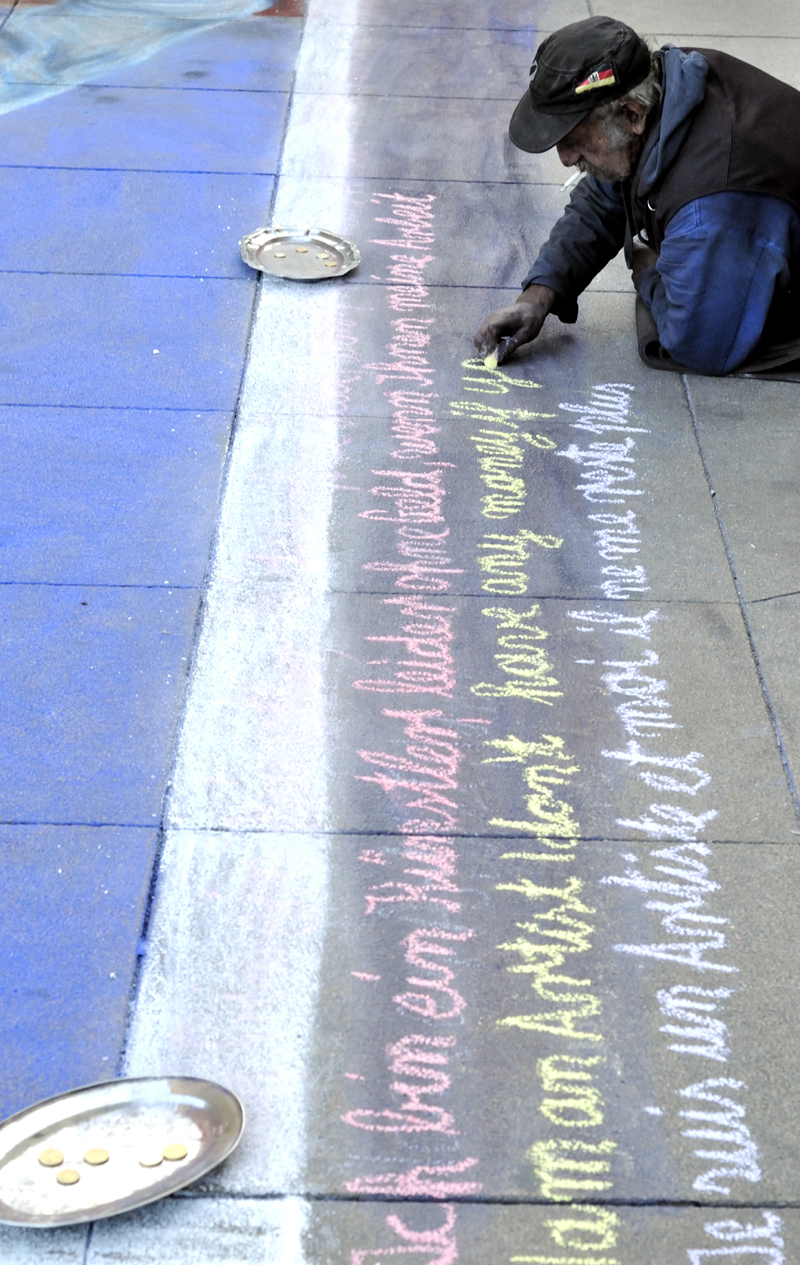 Ich bin ein Künstler, leider ohne Geld, wenn Ihnen meine Arbeit
I am an Artist I dont have any money if yo
Je suis un Artiste et moi il neme reste plus